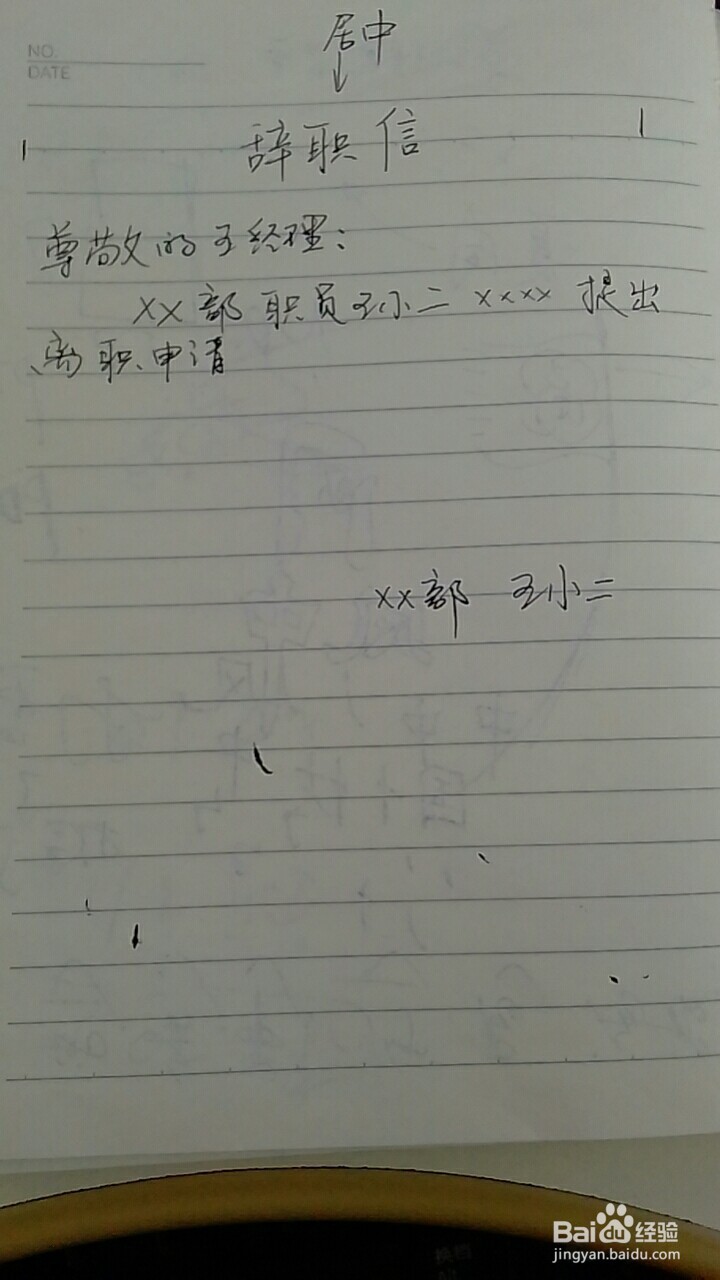 NO.
DATE
居中
辞职信
尊敬的王经理:
XX部职员王小二XXXX提出
离职申请
XX部 王小二
Baidu经验
jingyan.baidu.com